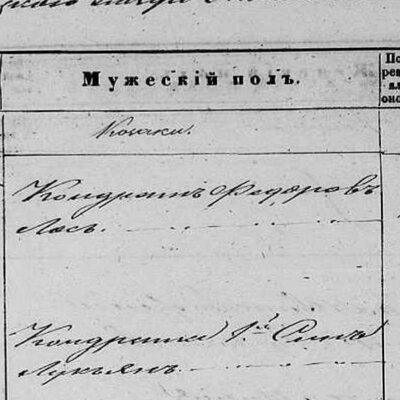 Мужескій полъ.
По
рев
Козаки.
Кондратъ Федоровъ
Лось.
Кондрата 1й Сынъ
Лукьянъ